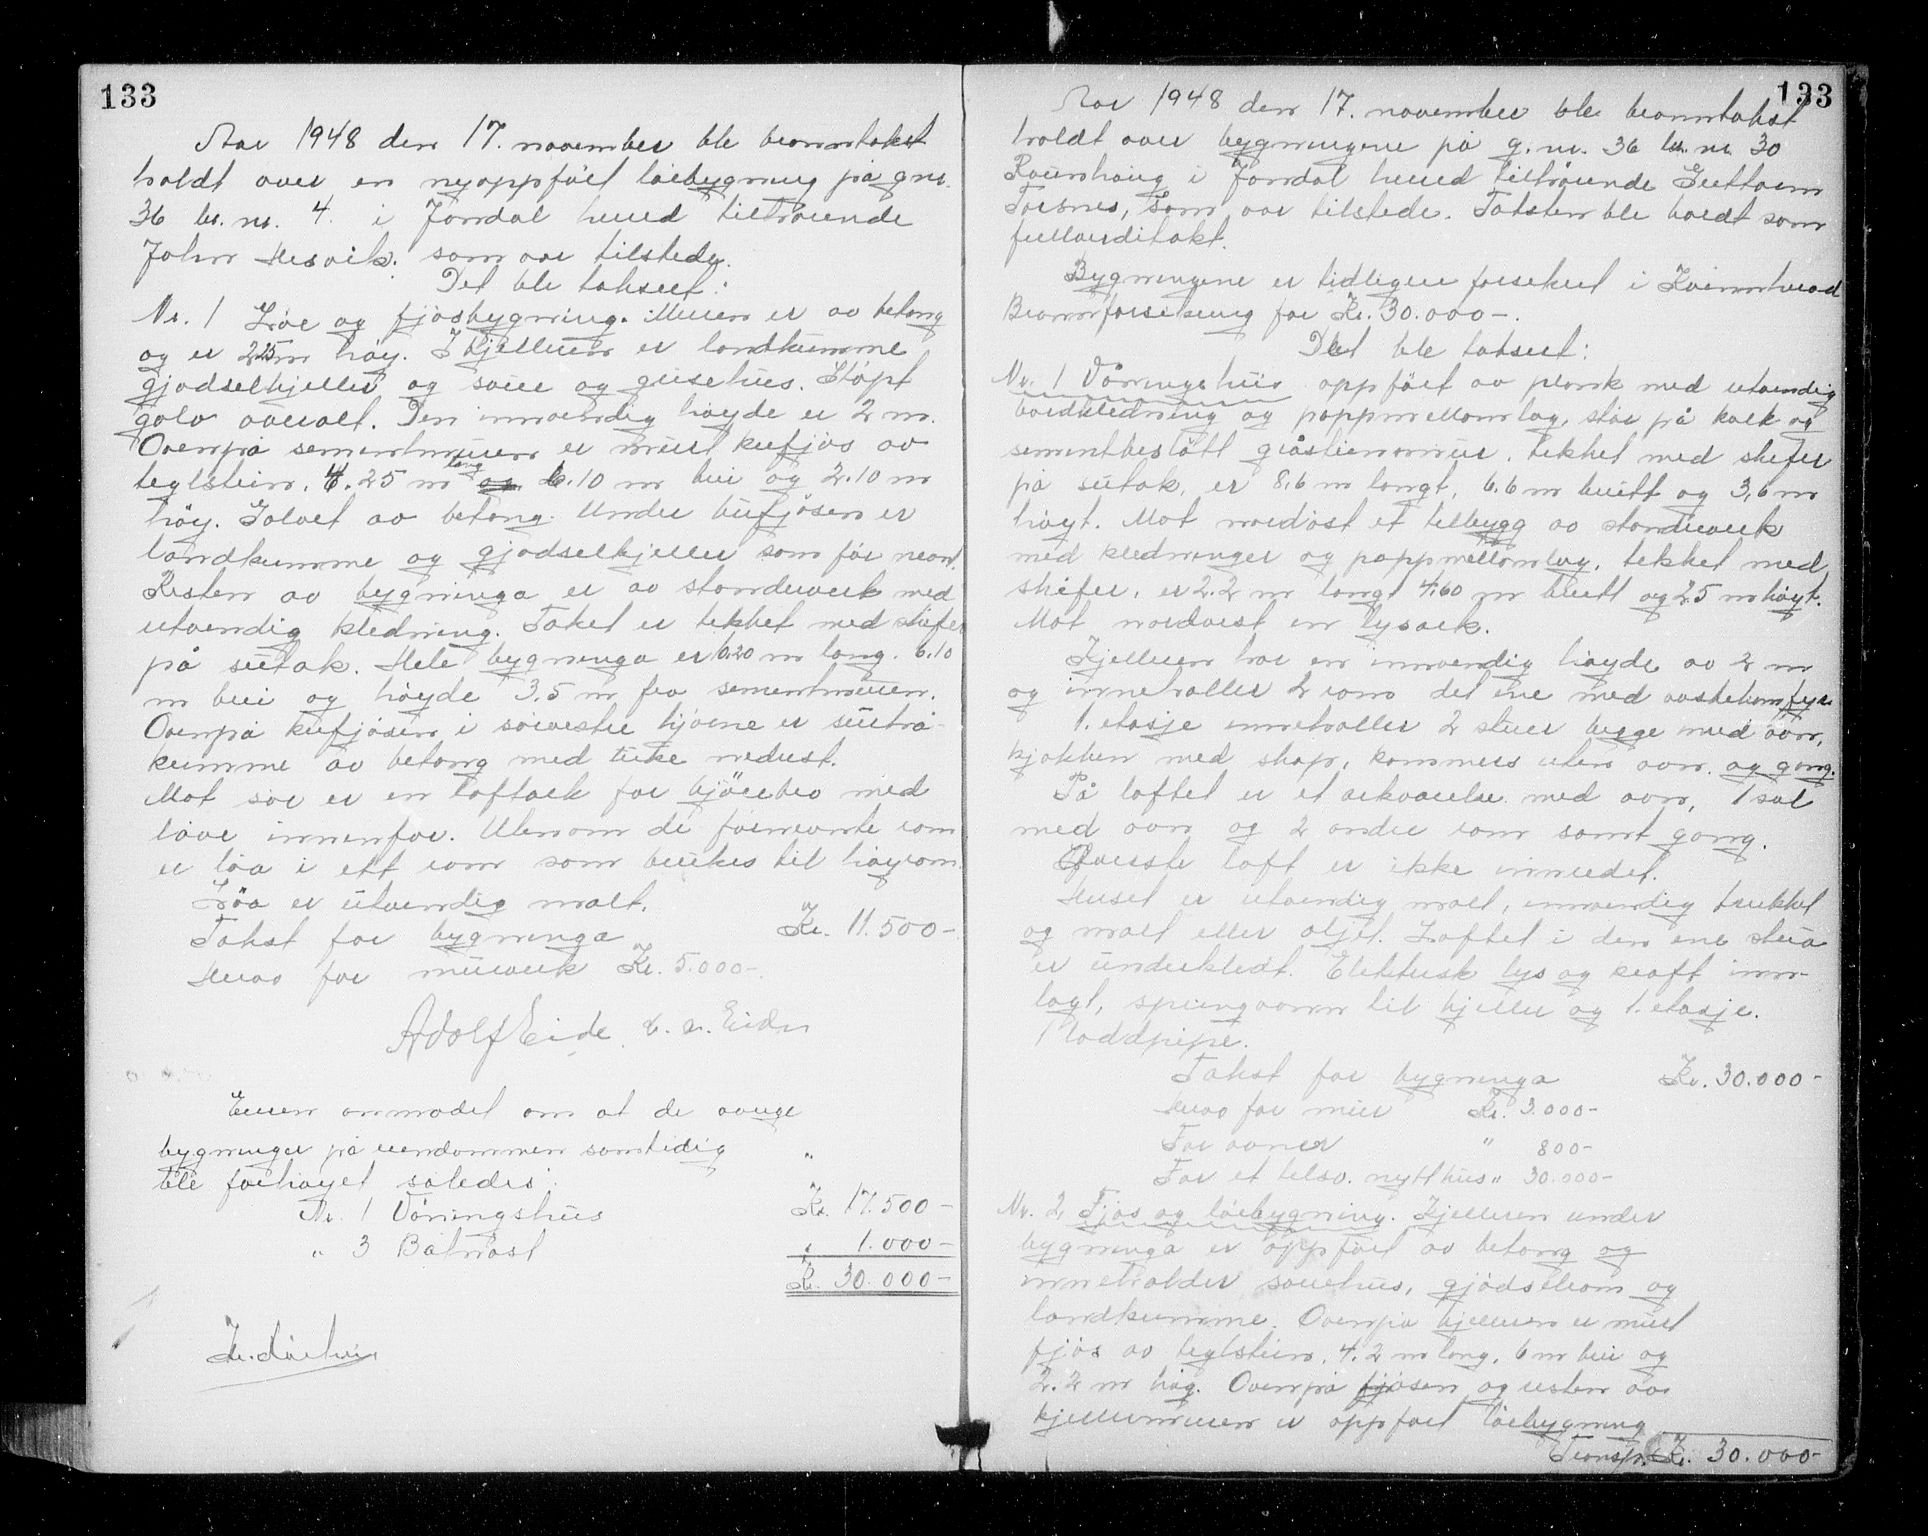 133
Aar 1948 den 17. november ble branntakst
holdt over en nyoppført løebygning på gnr.
36 br. nr. 4. i Jondal herred tilhørende
John Mesvik. som var tilstede.
Det ble taksert:
Nr. 1 Løe og fjøsbygning. Muren er av betong
og er 2.25 m høy. I kjelleren er landkumme
gjødselkjeller og saue og grisehus. Støpt
golv overalt. Den innvendig høyde er 2 m.
Ovenpå sementmuren er murt kufjøs av
teglstein, 4.25 m lang og 6.10 m brei og 2.10 m
høy. Golvet av betong. Under kufjøsen er
landkumme og gjødselkjeller som før nevnt.
Resten av bygninga er av standerverk med
utvendig kledning. Taket er tekket med skifer
på sutak. Hele bygninga er 10.20 m lang. 6.10
m brei og høyde 3.5 m fra sementmuren.
Ovenpå kufjøsen i sørvestre hjørne er surhå-
kumme av betong med luke nederst.
Mot sør er en loftark for kjörebro med
låve innenfor. Utenom de førnevnte rom
er løa i ett rom som brukes til høyrom.
Löa er utvendig malt.
Takst for bygninga Kr. 11.500-
Herav for murverk Kr. 5.000-.
Adolf Eide
Eieren anmodet om at de øvrige
bygninger på eiendommen samtidig
ble forhøyet således: "
Nr. 1 Våningshus Kr. 17.500-
" 3 Båtnøst " 1.000-
Kr. 30.000-
133
Aar 1948 den 17. november ble branntakst
holdt over bygningene på g.nr. 36 br. nr. 30
i Jondal herred tilhørende Guttorm
Torsnes, som var tilstede. Taksten ble holdt som
fullverditakst.
Bygningene er tidligere forsikret i Kvinnherad
Brannforsikring for Kr. 30.000-.
Det ble taksert:
Nr. 1 Våningshus oppført av plank med utvendig
bordkledning og pappmellomlag, står på kalk og
sementbestøtt gråstienmur, tekket med skifer
på sutak, er 8,6 m langt, 6.6 m breitt og 3,6 m
høyt. Mot nordøst et tilbygg av standerverk
med kledninger og pappmellomlag, tekket med
skifer, er 2.2 m langt 4,60 m breitt og 2.5 m høyt.
Mot nordvest en lysark.
Kjelleren har en innvendig høyde av 2 m
og inneholder 2 rom det ene med vaskekomfyr
1. etasje inneholder 2 stuer begge med ovn,
kjøkken med skap, kammers uten ovn og gang.
På loftet er et arkværelse med ovn, 1 sal
med ovn og 2 andre rom samt gang.
Øverste loft er ikke innredet.
Huset er utvendig malt, innvendig trukket
og malt eller oljet. Loftet i den ene stua
er underkledt. Elektrisk lys og kraft inn-
lagt, springvann til kjeller og 1. etasje.
1 loddpipe.
Takst for bygninga Kr. 30.000-
Herav for mur Kr. 3.000-
For ovner " 800-
For et tilsv. nytt hus " 30.000-
Nr. 2 Fjøs og løebygning. Kjelleren under
bygninga er oppført av betong og
inneholder sauehus, gjødselrom og
landkumme. Ovenpå kjelleren er murt
fjøs av teglstein, 4.2 m lang, 6 m brei og
2.2 m høg. Ovenpå fjøsen og resten av
kjellermuren er oppført løebygning
Transp. Kr. 30.000-